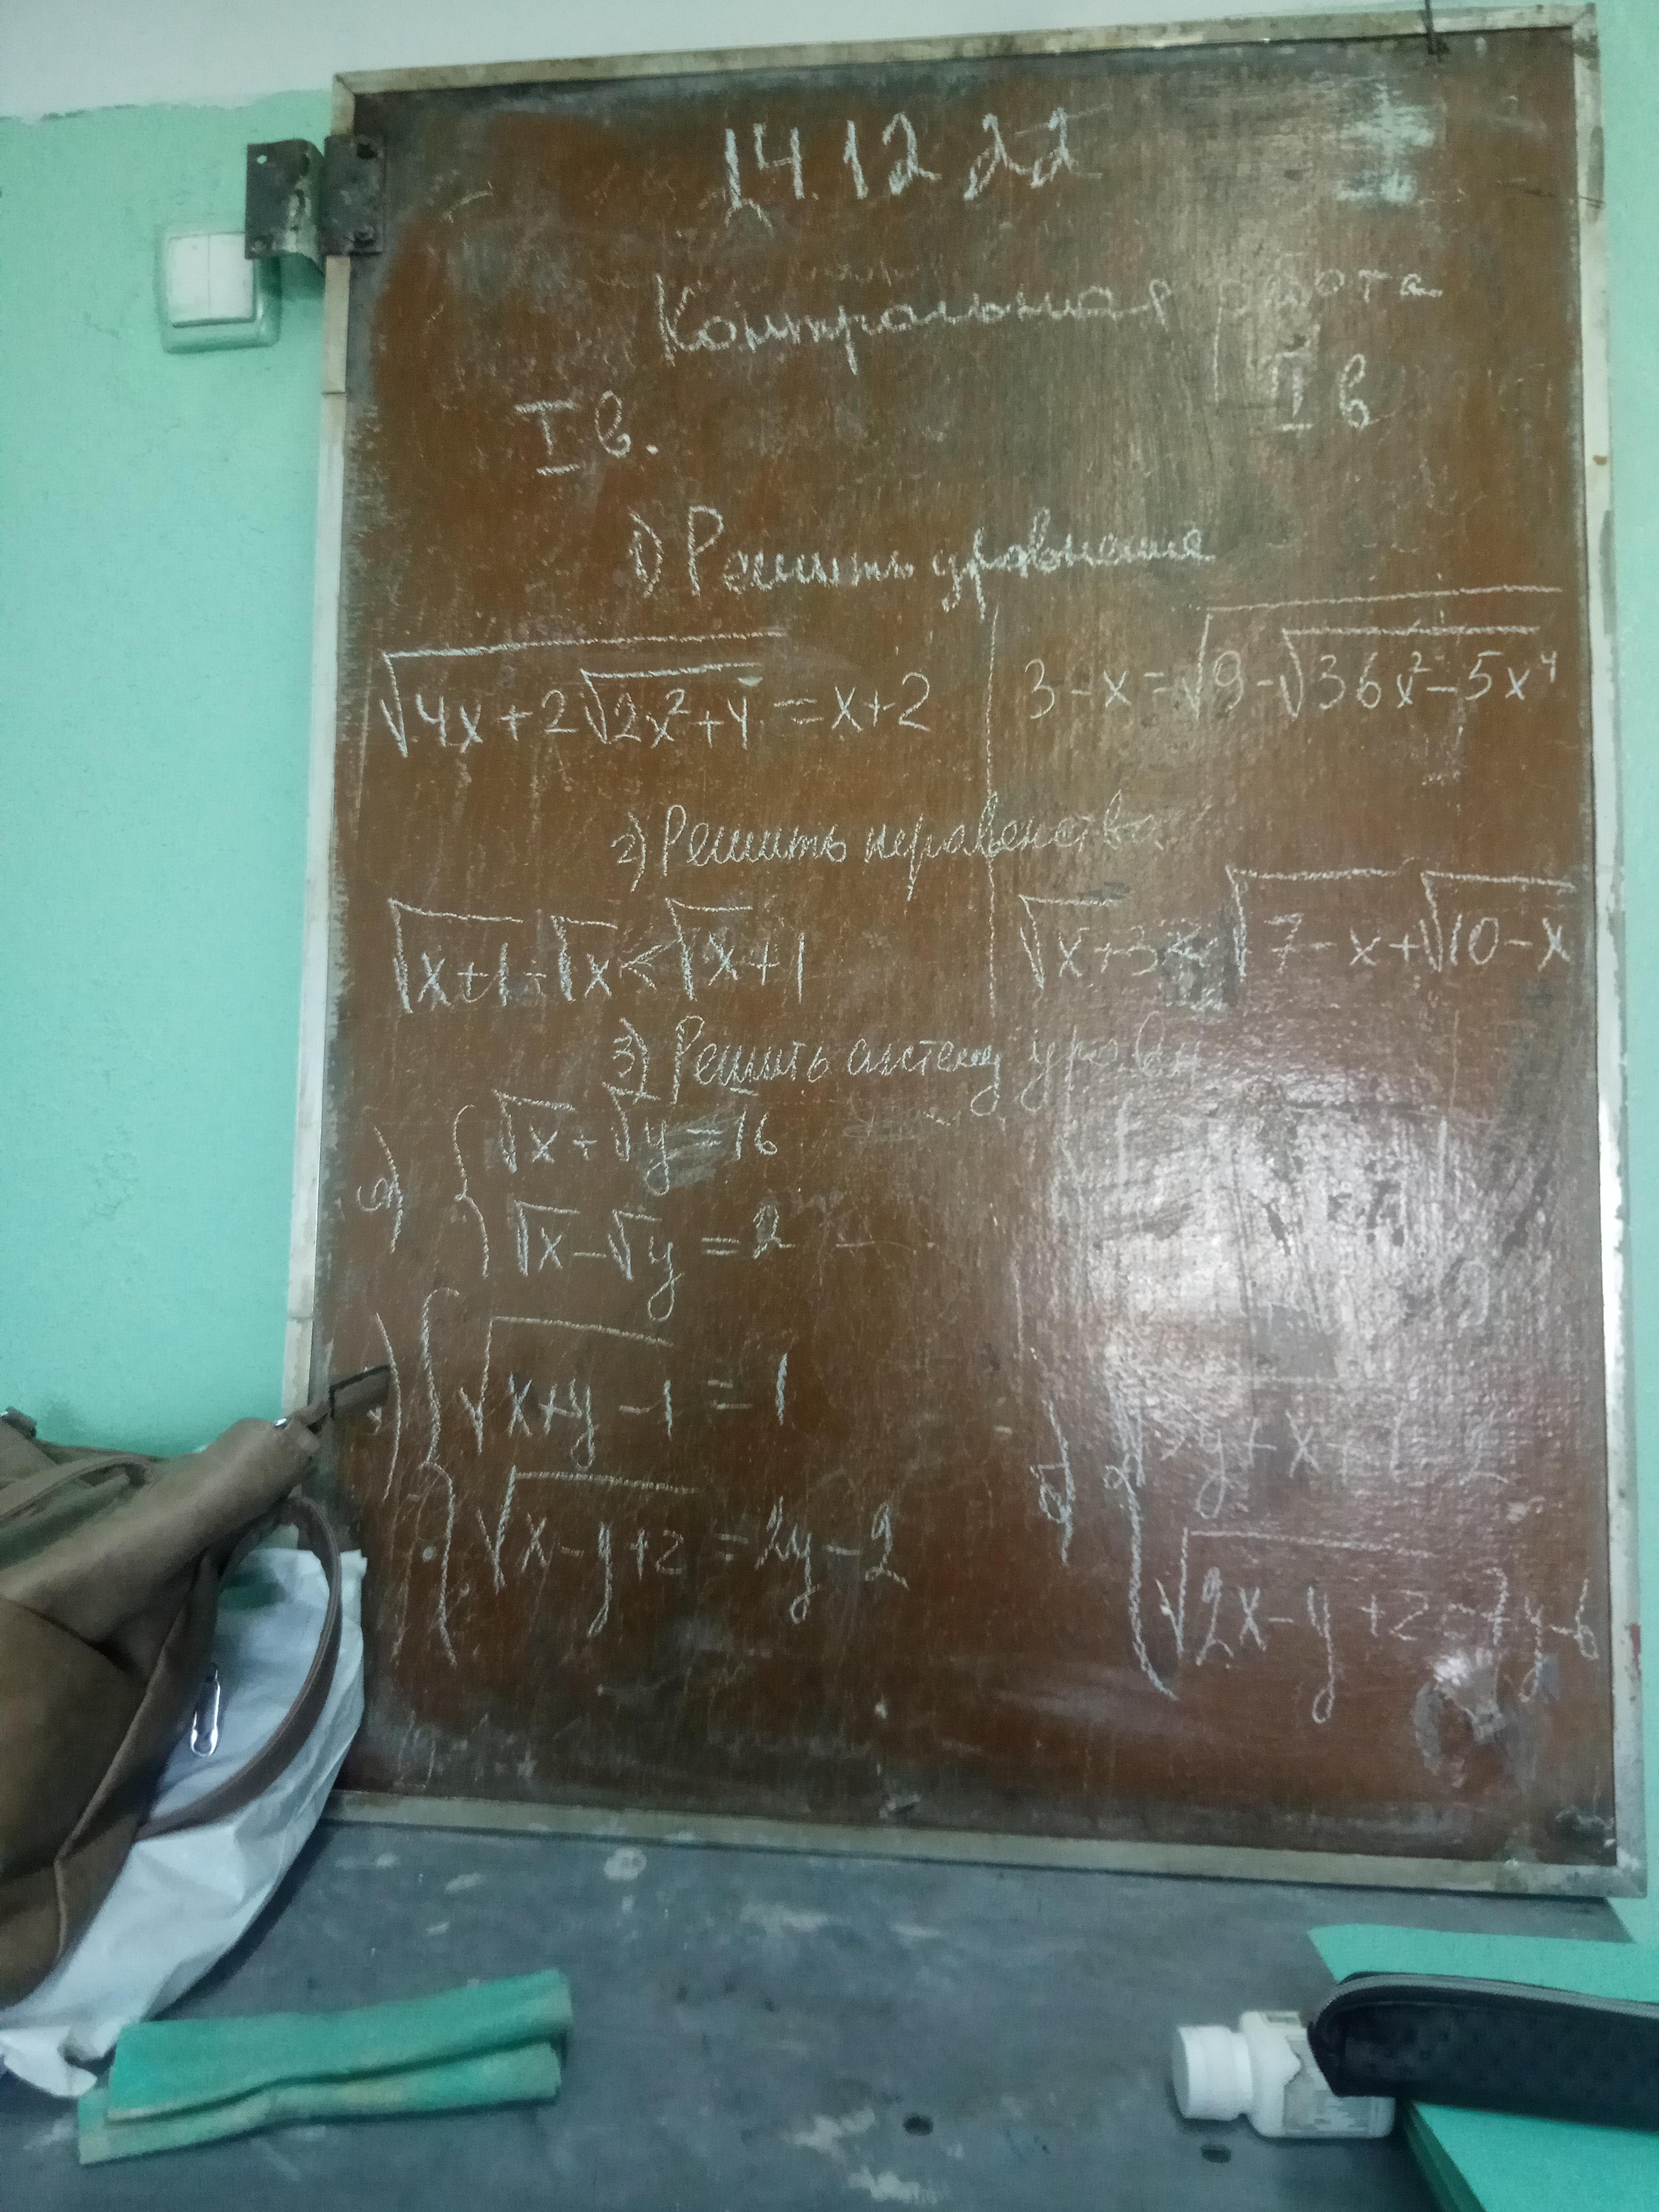 14.12 22
Контрольная работа
I в.
I в
1) Решить уравнение
√(4x+2√(2x²+4)) = x+2
3-x=√(9-√(36x²-5x⁴))
2) Решить неравенство
√(x+1)-√x<√x+1
√x+3<√(7-x)+√(10-x)
3) Решить систему уравн
а) { √x+√y=16
√x-√y=2
{ √(x+y-1)=1
√(x-y+2)=2y-2
б) {
√(2x-y+2)=7y-6